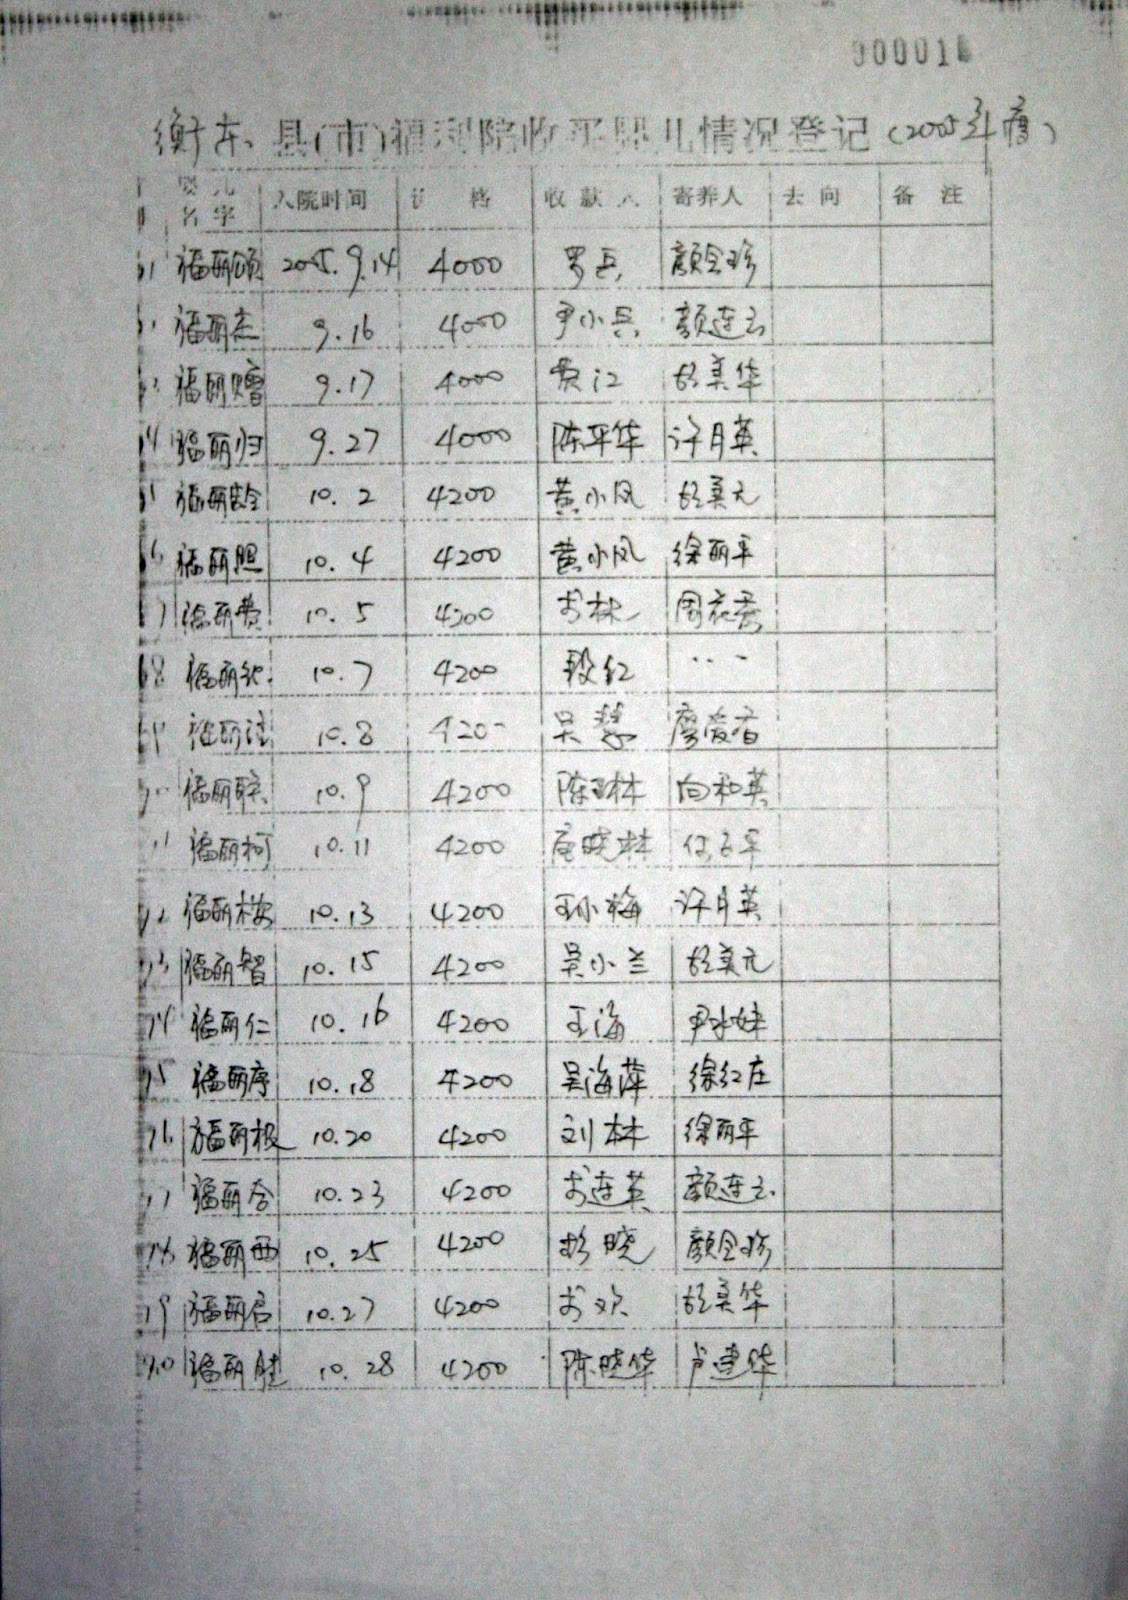 000001
衡东县(市)福利院收买婴儿情况登记(2005年度)
婴儿名字 入院时间 价格 收款人 寄养人 去向 备注
61 福丽颂 2005.9.14 4000 罗 颜金珍
福丽杰 9.16 4000 尹小兵 颜连云
福丽赠 9.17 4000 贾江 胡美华
64 福丽归 9.27 4000 陈平华 许月英
福丽龄 10.2 4200 黄小凤 胡美元
66 福丽照 10.4 4200 黄小凤 徐丽平
67 福丽贵 10.5 4200 林
68 福丽 10.7 4200 段红 ...
69 福丽 10.8 420- 吴慧 廖爱香
70 福丽联 10.9 4200 陈琳 向和英
71 福丽柯 10.11 4200 唐晓林
72 福丽桉 10.13 4200 王小梅 许月英
73 福丽智 10.15 4200 吴小兰 胡美元
74 福丽仁 10.16 4200 王海 尹水妹
75 福丽序 10.18 4200 吴海萍 徐红庄
76 福丽极 10.20 4200 刘林 徐丽平
77 福丽 10.23 4200 连英 颜连云
78 福丽西 10.25 4200 彭晓 颜金珍
79 福丽启 10.27 4200 欢 胡美华
福丽胜 10.28 4200 陈晓华 卢建华